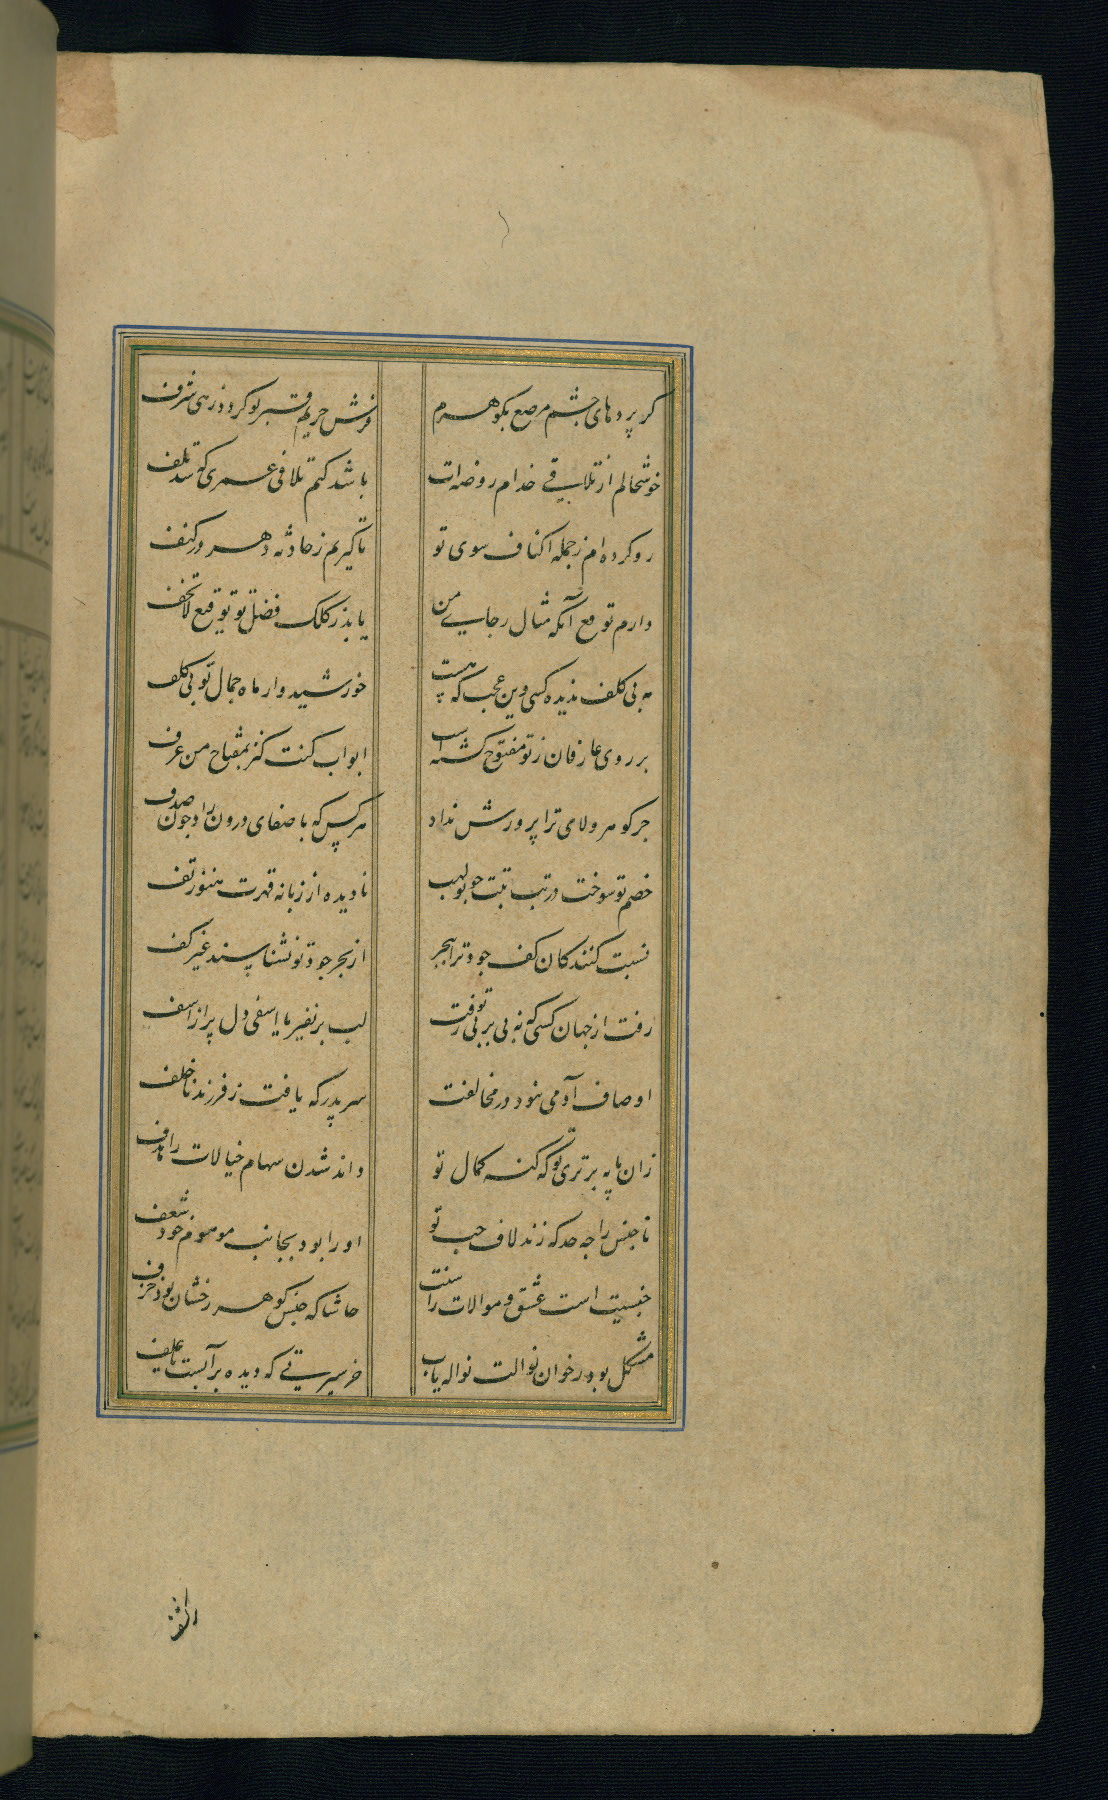 کر پردهای چشم مرصع بکوهرم فرش حریم قبر تو کردد زهی شرف
خوشحالم از تلاقی خدام روضه‌ات باشد کنم تلافی عمری که شد تلف
رو کرده‌ام ز جمله اکناف سوی تو تا کیریم ز حادثه دهر در کنف
دارم توقع آنکه مثال رجای من یابد ز کلک فضل تو توقیع لا تخف
مه بی کلف ندیده کسی وین عجب که هست خورشیدوار ماه جمال تو بی کلف
بر روی عارفان ز تو مفتوح کشته است ابواب کنت کنز بمفتاح من عرف
جز کوهر ولای ترا پرورش نداد هر کس که با صفای درون زاد چون صدف
خصم تو سوخت در تب تبت چو بولهب نادیده از زبانه قهرت هنوز تف
نسبت کنندکان کف جود ترا ببحر از بحر جود تو نشناسند غیر کف
رفت از جهان کسی که نه بی بر پی تو رفت لب بر نفیر یا اسفی دل پر از اسف
اوصاف آدمی نبود در مخالفت سر پدر که یافت ز فرزند ناخلف
زان پایه برتری تو که کنه کمال تو داند شدن سهام خیالات را هدف
ناجنس را چه حد که زند لاف حب تو او را بود بجانب موهوم خود شعف
جنسیت است عشق و موالات را سبب حاشا که جنس کوهر رخشان بود خزف
مشکل بود ز خوان نوالت نواله یاب خر سیرتی که دیده بر آبست یا علف